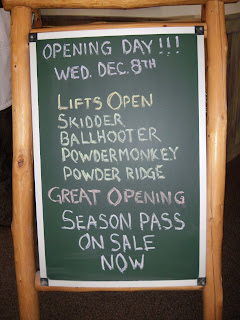 OPENING DAY!!!
WED. DEC. 8TH
LIFTS OPEN
SKIDDER
BALLHOOTER
POWDERMONKEY
POWDER RIDGE
GREAT OPENING
SEASON PASS
ON SALE
NOW